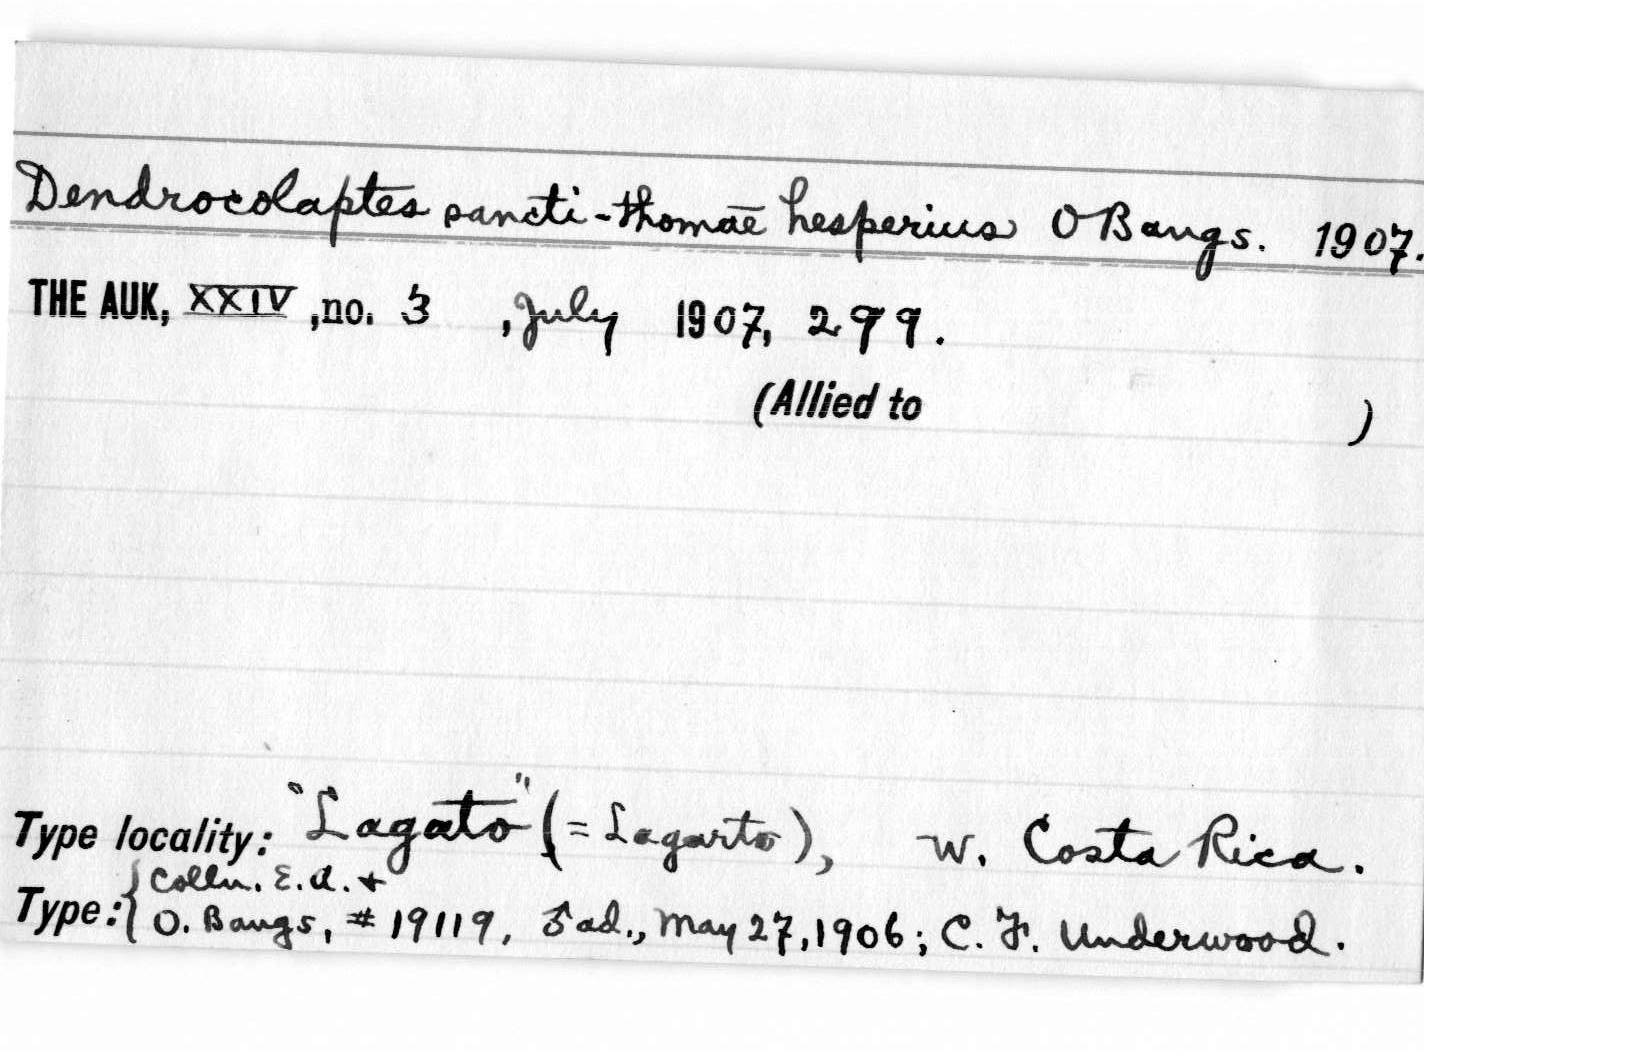 Dendrocolaptes sancti-thomae hesperius O Bangs. 1907.
THE AUK, XXIV, no. 3, July 1907, 299.
(Allied to )
Type locality: "Lagato" (= Lagarto), W. Costa Rica.
Colln. E. A. +
Type: { O. Bangs, # 19119, ♂ ad., May 27, 1906; C. F. Underwood.